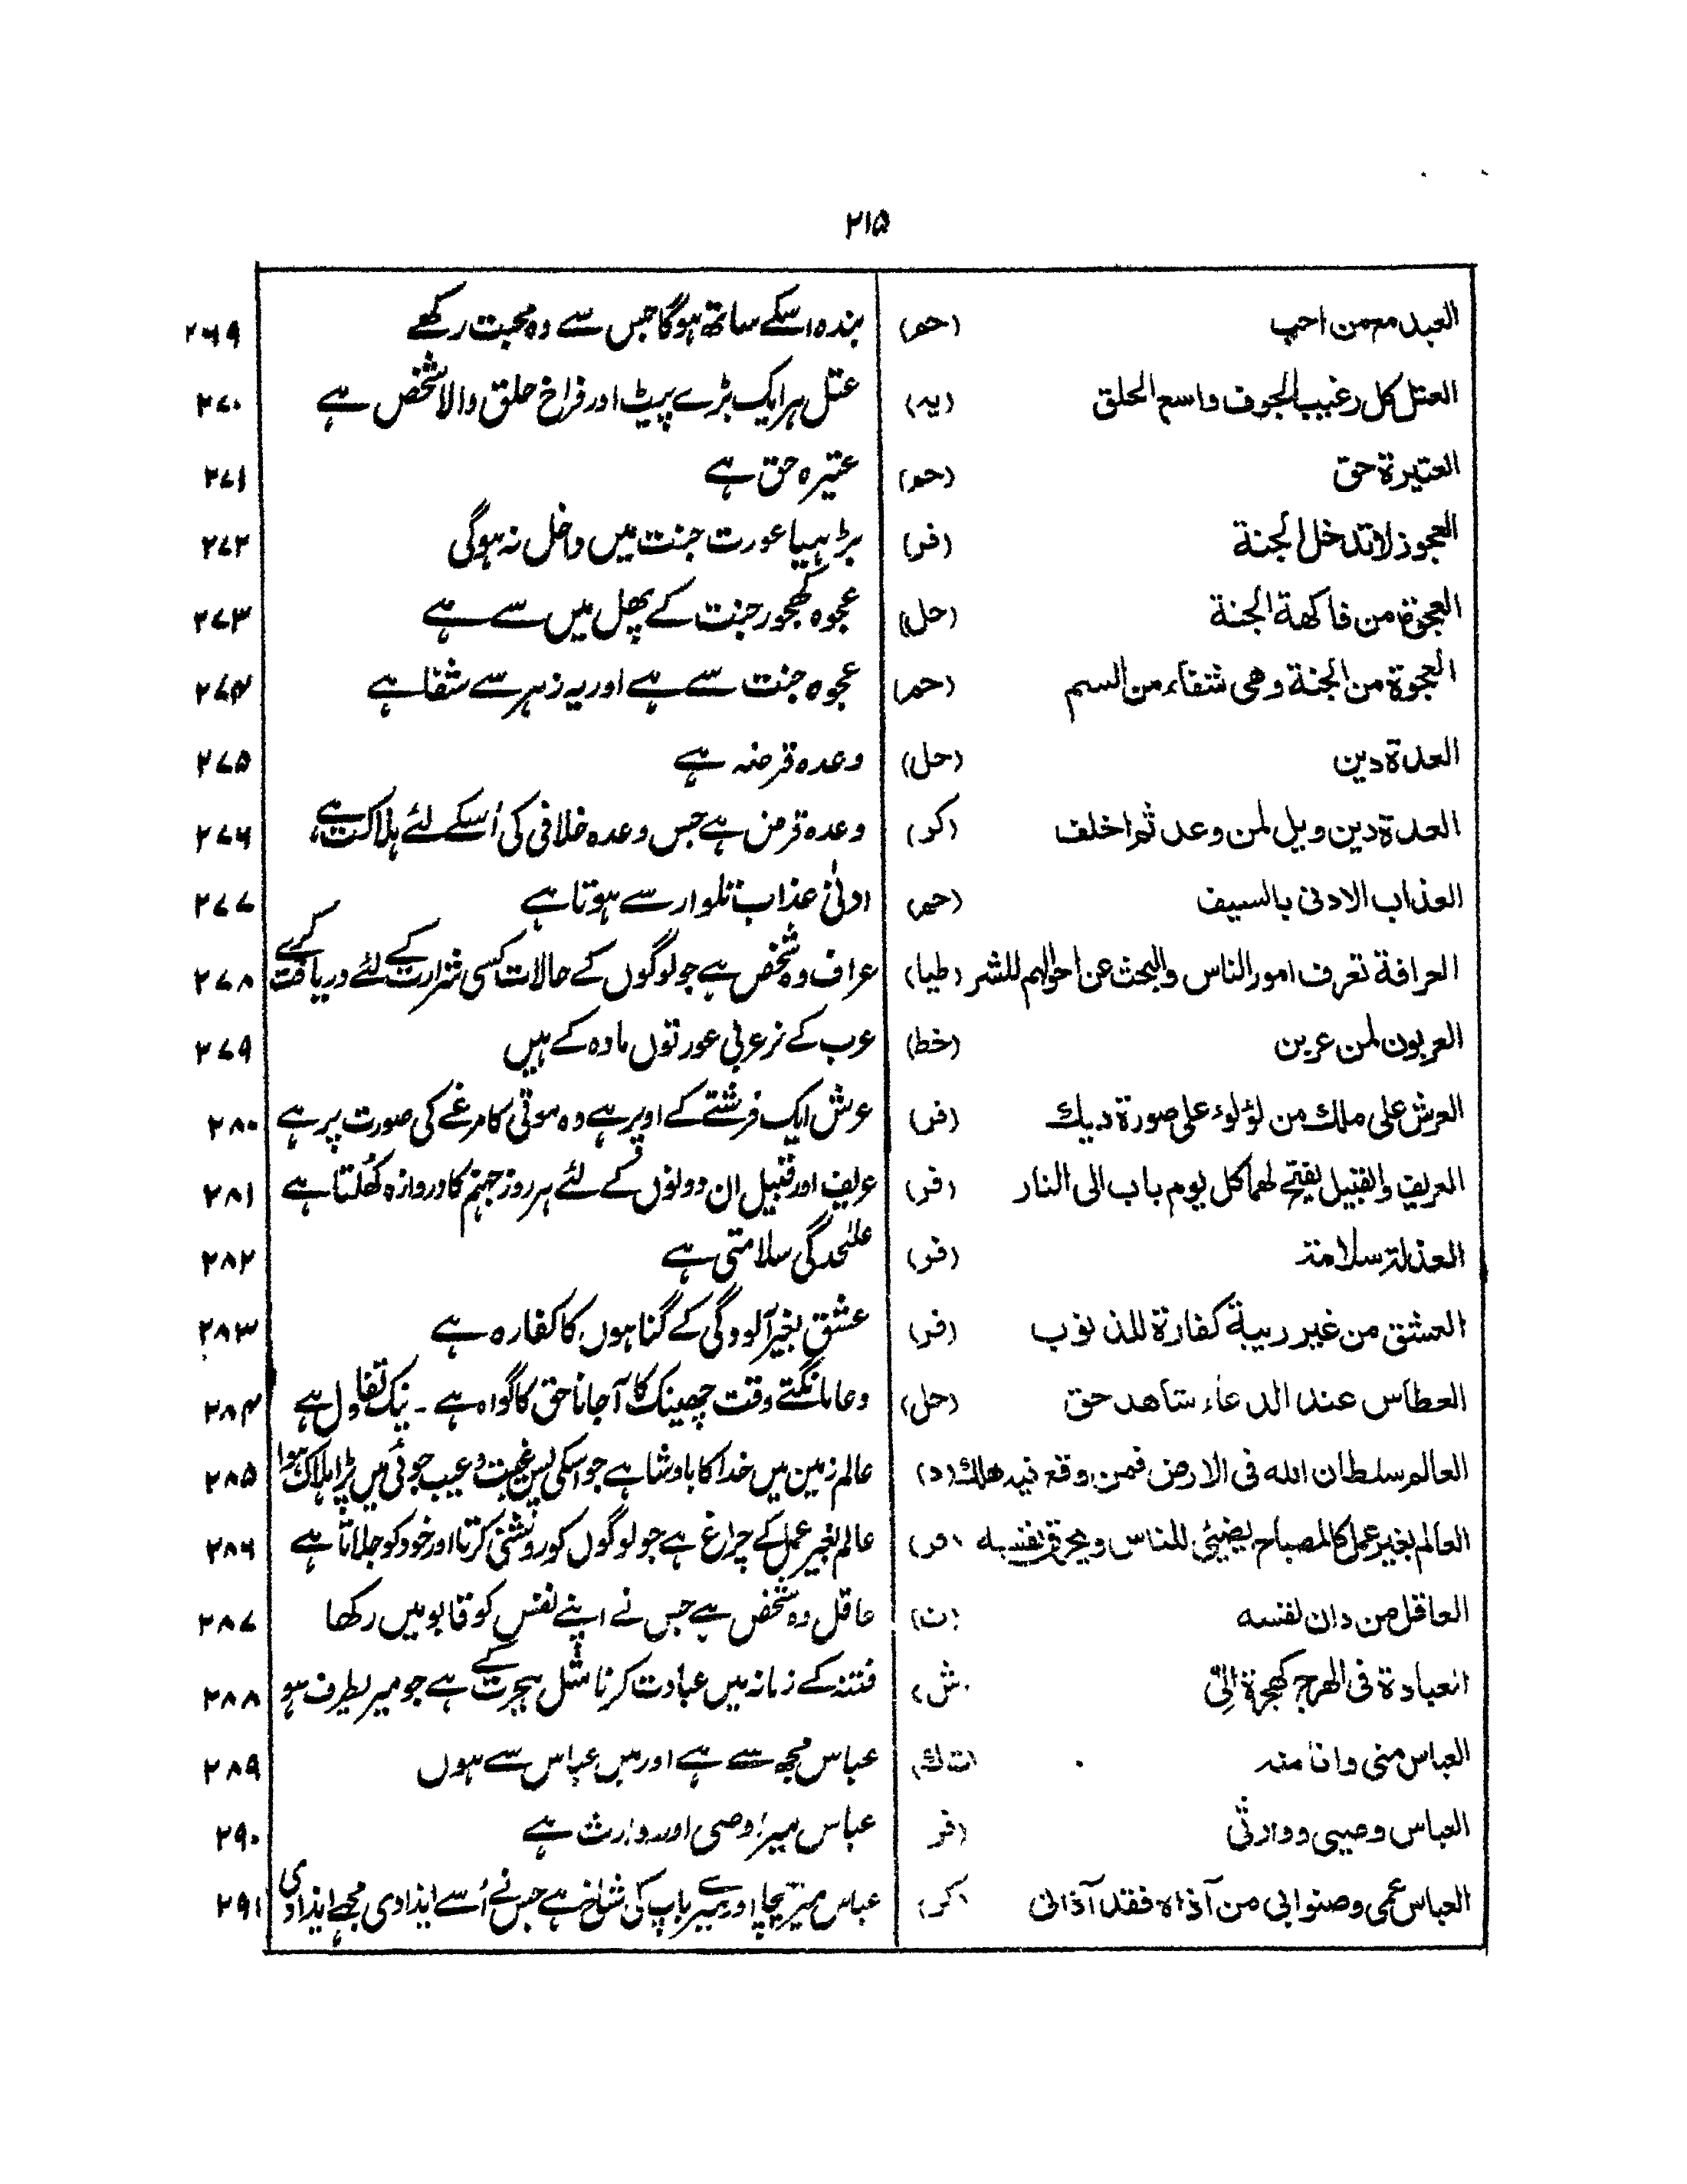 ۲۱۵
العبد مع من احب (حم) بندہ اسکے ساتھ ہوگا جس سے وہ محبت رکھے ۲۶۹
العتل كل رغيب الجوف واسع الحلق (یہ) عتل ہر ایک بڑے پیٹ اور فراخ حلق والا شخص ہے ۲۷۰
العتيرة حق (حم) عتیرہ حق ہے ۲۷۱
العجوز لا تدخل الجنة (فر) بڑہیا عورت جنت میں داخل نہ ہوگی ۲۷۲
العجوة من فاكهة الجنة (حل) عجوہ کھجور جنت کے پھل میں سے ہے ۲۷۳
العجوة من الجنة وهى شفاء من السم (حم) عجوہ جنت سے ہے اور یہ زہر سے شفا ہے ۲۷۴
العدة دين (حل) وعدہ قرضہ ہے ۲۷۵
العدة دين ويل لمن وعد ثم اخلف (كر) وعدہ قرض ہے جس وعدہ خلافی کی اُسکے لئے ہلاکت ہے ۲۷۶
العذاب الادنى بالسيف (حم) ادنیٰ عذاب تلوار سے ہوتا ہے ۲۷۷
العرافة تعرف امور الناس والبحث عن احوالهم للشر (طيا) عراف وہ شخص ہے جو لوگوں کے حالات کسی شرارت کے لئے دریافت کرے ۲۷۸
العربون لمن عربن (خط) عرب کے نر عربی عورتوں مادہ کے ہیں ۲۷۹
العرش على ملك من لؤلوء على صورة ديك (فر) عرش ایک فرشتے کے اوپر ہے وہ موتی کا مرغے کی صورت پر ہے ۲۸۰
العريف والقبيل يفتح لهما كل يوم باب الى النار (فر) عریف اور قبیل ان دونوں کے لئے ہر روز جہنم کا دروازہ کُھلتا ہے ۲۸۱
العذلة سلامة (فر) علٰحدگی سلامتی ہے ۲۸۲
العشق من غير ريبة كفارة للذنوب (فر) عشق بغیر آلودگی کے گناہوں کا کفارہ ہے ۲۸۳
العطاس عند الدعاء شاهد حق (حل) دعا مانگتے وقت چھینک کا آجانا حق کا گواہ ہے ۔ نیک تفاول ہے ۲۸۴
العالم سلطان الله فى الارض فمن وقع فيه هلك (د) عالم زمین میں خدا کا بادشا ہے جو اسکی پس غیبت و عیب جوئی میں پڑا ہلاک ہوا ۲۸۵
العالم بغير عمل كالمصباح يضيئ للناس ويحرق نفسه (فر) عالم بغیر عمل کے چراغ ہے جو لوگوں کو روشنی کرتا اور خود کو جلاتا ہے ۲۸۶
العاقل من دان نفسه (ت) عاقل وہ شخص ہے جس نے اپنے نفس کو قابو میں رکھا ۲۸۷
العبادة فى الهرج كهجرة الىّ (ش) فتنہ کے زمانہ میں عبادت کرنا مثل ہجرت کے ہے جو میریطرف ہو ۲۸۸
العباس منى وانا منه (ت ك) عباس مجھ سے ہے اور میں عباس سے ہوں ۲۸۹
العباس وصيى ووارثى (فر عباس میرا وصی اور وارث ہے ۲۹۰
العباس عمى وصنوابى من آذاه فقد آذانى (كر) عباس میرے چچا اور میرے باپ کی شاخ ہے جس نے اُسے ایذا دی مجھے ایذا دی ۲۹۱